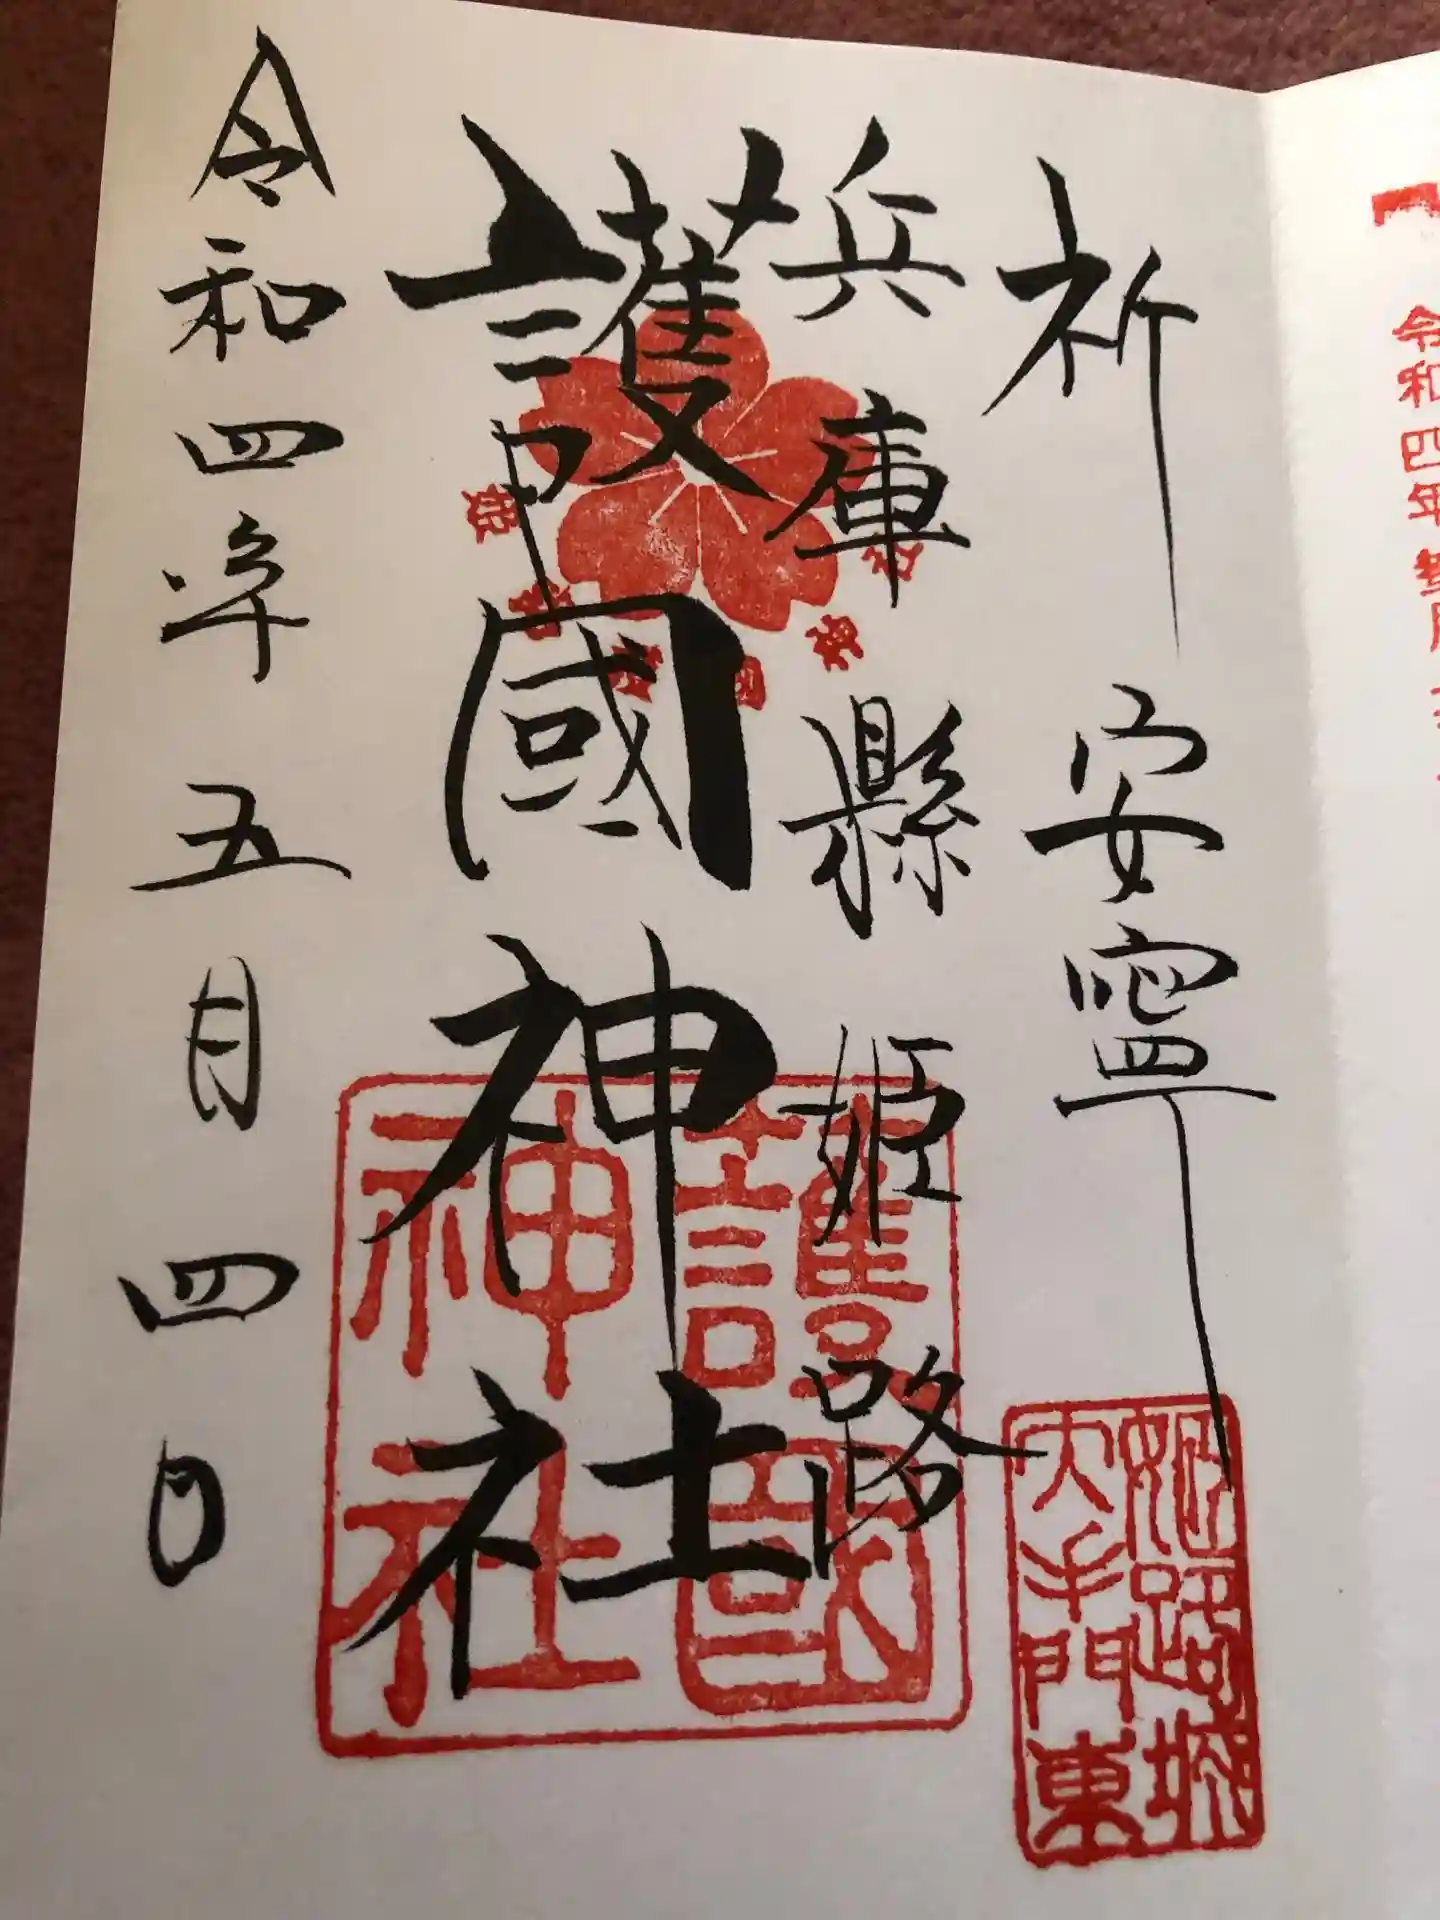 祈 安寧
兵庫縣姫路
護國神社
令和四年五月四日
姫路城
大手門東
護國
神社
令和四年